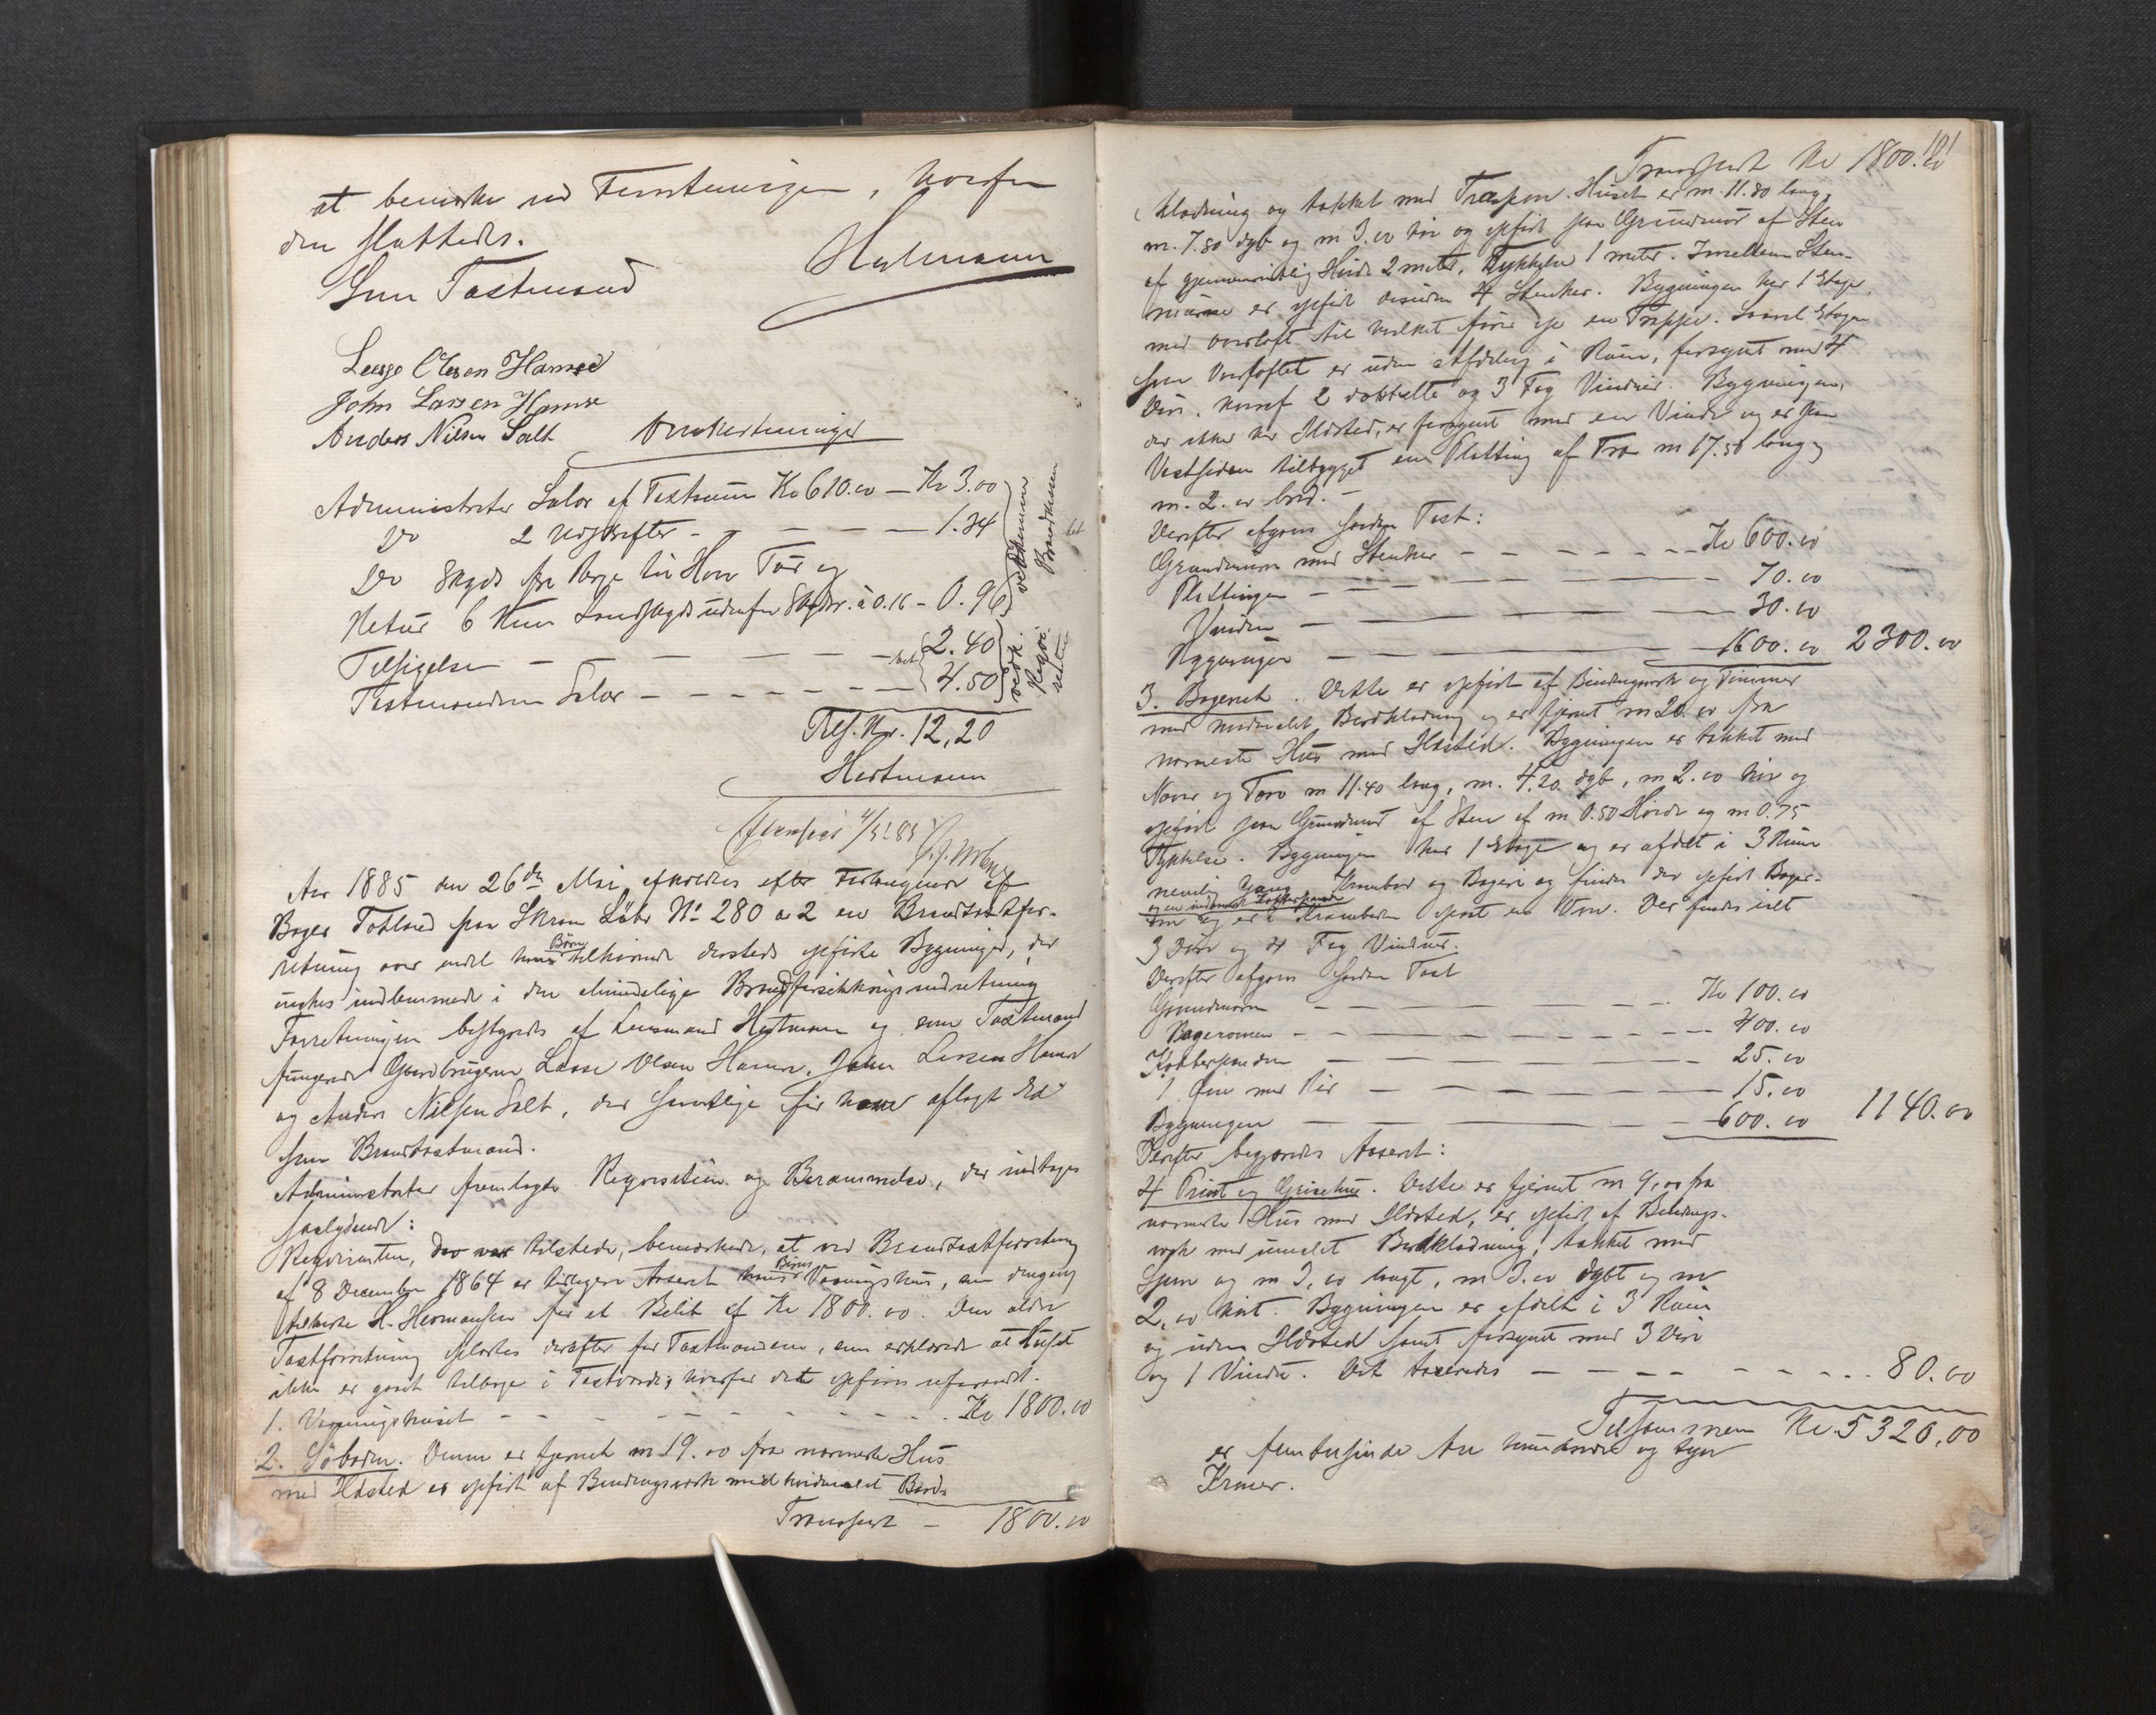 at bemærke ved Forretningen, hvorfor
den sluttedes.
Hartmann
Som Taxtmænd
Lasse Olsen Hamre
John Larsen Hamre
Anders Nilsen Salt
Omkostninger
Administrator Salær af Taxtsum Kr 610.00 — Kr 3.00
Do 2 Udskrifter — 1.34
Do Skyds fra til Tur og
Retur 6 Km Landskyds udenfor à 0.16 - 0.96
Tilsigelse — 2.40
Taxtmændenes Salær — 4.50
Tils. Kr. 12,20
Hartmann
Aar 1885 den 26de Mai afholdtes efter Forlangende af
Bager Toft paa Skram Løbe No 280 a 2 en Brandtaxtfor-
retning over endel hans Børn tilhørende dersteds opførte Bygninger, der
ønskes indlemmede i den almindelige Brandforsikringsindretning
Forretningen bestyredes af Lensmand Hartmann og som Taxtmænd
fungerede Gaardbrugerne Lasse Olsen Hamre, John Larsen Hamre
og Anders Nilsen Salt, der samtlige før have aflagt Ed
som Brandtaxtmænd.
Administrator fremlagde Reqvisition og Berammelse, der indtages
saalydende:
Reqvirenten, der var tilstede, bemærkede, at ved Brandtaxtforretning
af 8 December 1864 er tidligere Asseret hans Børns Vaaningshus, som dengang
tilhørte H. Hermansen for et Beløb af Kr 1800.00. Den ældre
Taxtforretning oplæstes derefter for Taxtmændene, som erklærede at Huset
ikke er gaaet tilbage i Taxtværdi, hvorfor det opføres uforandret.
1. Vaaningshuset — Kr 1800.00
2. Søboden. Denne er fjernet m 19.00 fra nærmeste Hus
med Ildsted er opført af Bindingsværk med hvidmalet Bord-
Transport — 1800.00
101
Transport Kr 1800.00
klædning og takket med Træspon. Huset er m. 11.80 lang,
m. 7.80 dyb og m 3.00 høi og opført paa Grundmur af Sten
af gjennemsnitlig Høide 2 meter, Tykkelse 1 meter. Imellem Sten-
murene er opført desuden 4 Stenkar. Bygningen har 1 Etage
med Overloft til hvilket fører op en Trappe. Saavel Etagen
som Overloftet er uden Afdeling i Rum, forsynet med 4
Døre, hvoraf 2 dobbelte og 3 Fag Vinduer. Bygningen,
der ikke har Ildsted, er forsynet med en Vinde og er paa
Vestsiden tilbygget en Platting af Træ m 17.50 lang og
m. 2.00 bred. —
Derefter afgaves saadan Taxt:
Grundmuren med Stenkar — Kr 600.00
Plattingen — 70.00
Vinden — 30.00
Bygningen — 1600.00 2300.00
3. Bageriet. Dette er opført af Bindingsværk og Tømmer
med rødmalet Bordklædning og er fjernet m 20.00 fra
nærmeste Hus med Ildsted. Bygningen er takket med
Næver og Torv m 11.40 lang, m. 4.20 dyb, m 2.00 høi og
opført paa Grundmur af Sten af m 0.50 Høide og m 0.75
Tykkelse. Bygningen har 1 Etage og er afdelt i 3 Rum
nemlig Gang, Krambod og Bageri og findes der opført Bager-
ovn og en indmuret Kobberpande og er i Kramboden opsat en Ovn. Der findes ialt
3 Døre og 4 Fag Vinduer.
Derefter afgaves saadan Taxt
Grundmuren — Kr 100.00
Bagerovnen — 400.00
Kobberpanden — 25.00
1 Ovn med Rør — 15.00
Bygningen — 600.00 1140.00
Derefter begjæredes Asseret:
4 Privet og Grisehus. Dette er fjernet m 9,00 fra
nærmeste Hus med Ildsted, er opført af Bindings-
værk med umalet Bordklædning, takket med
Spon og m 3,00 langt, m 3.00 dybt og m
2,00 høit. Bygningen er afdelt i 3 Rum
og uden Ildsted samt forsynet med 3 Døre
og 1 Vindu. Det taxeredes — 80.00
Tilsammen Kr. 5320,00
er femtusinde tre hundrede og tyve
Kroner.